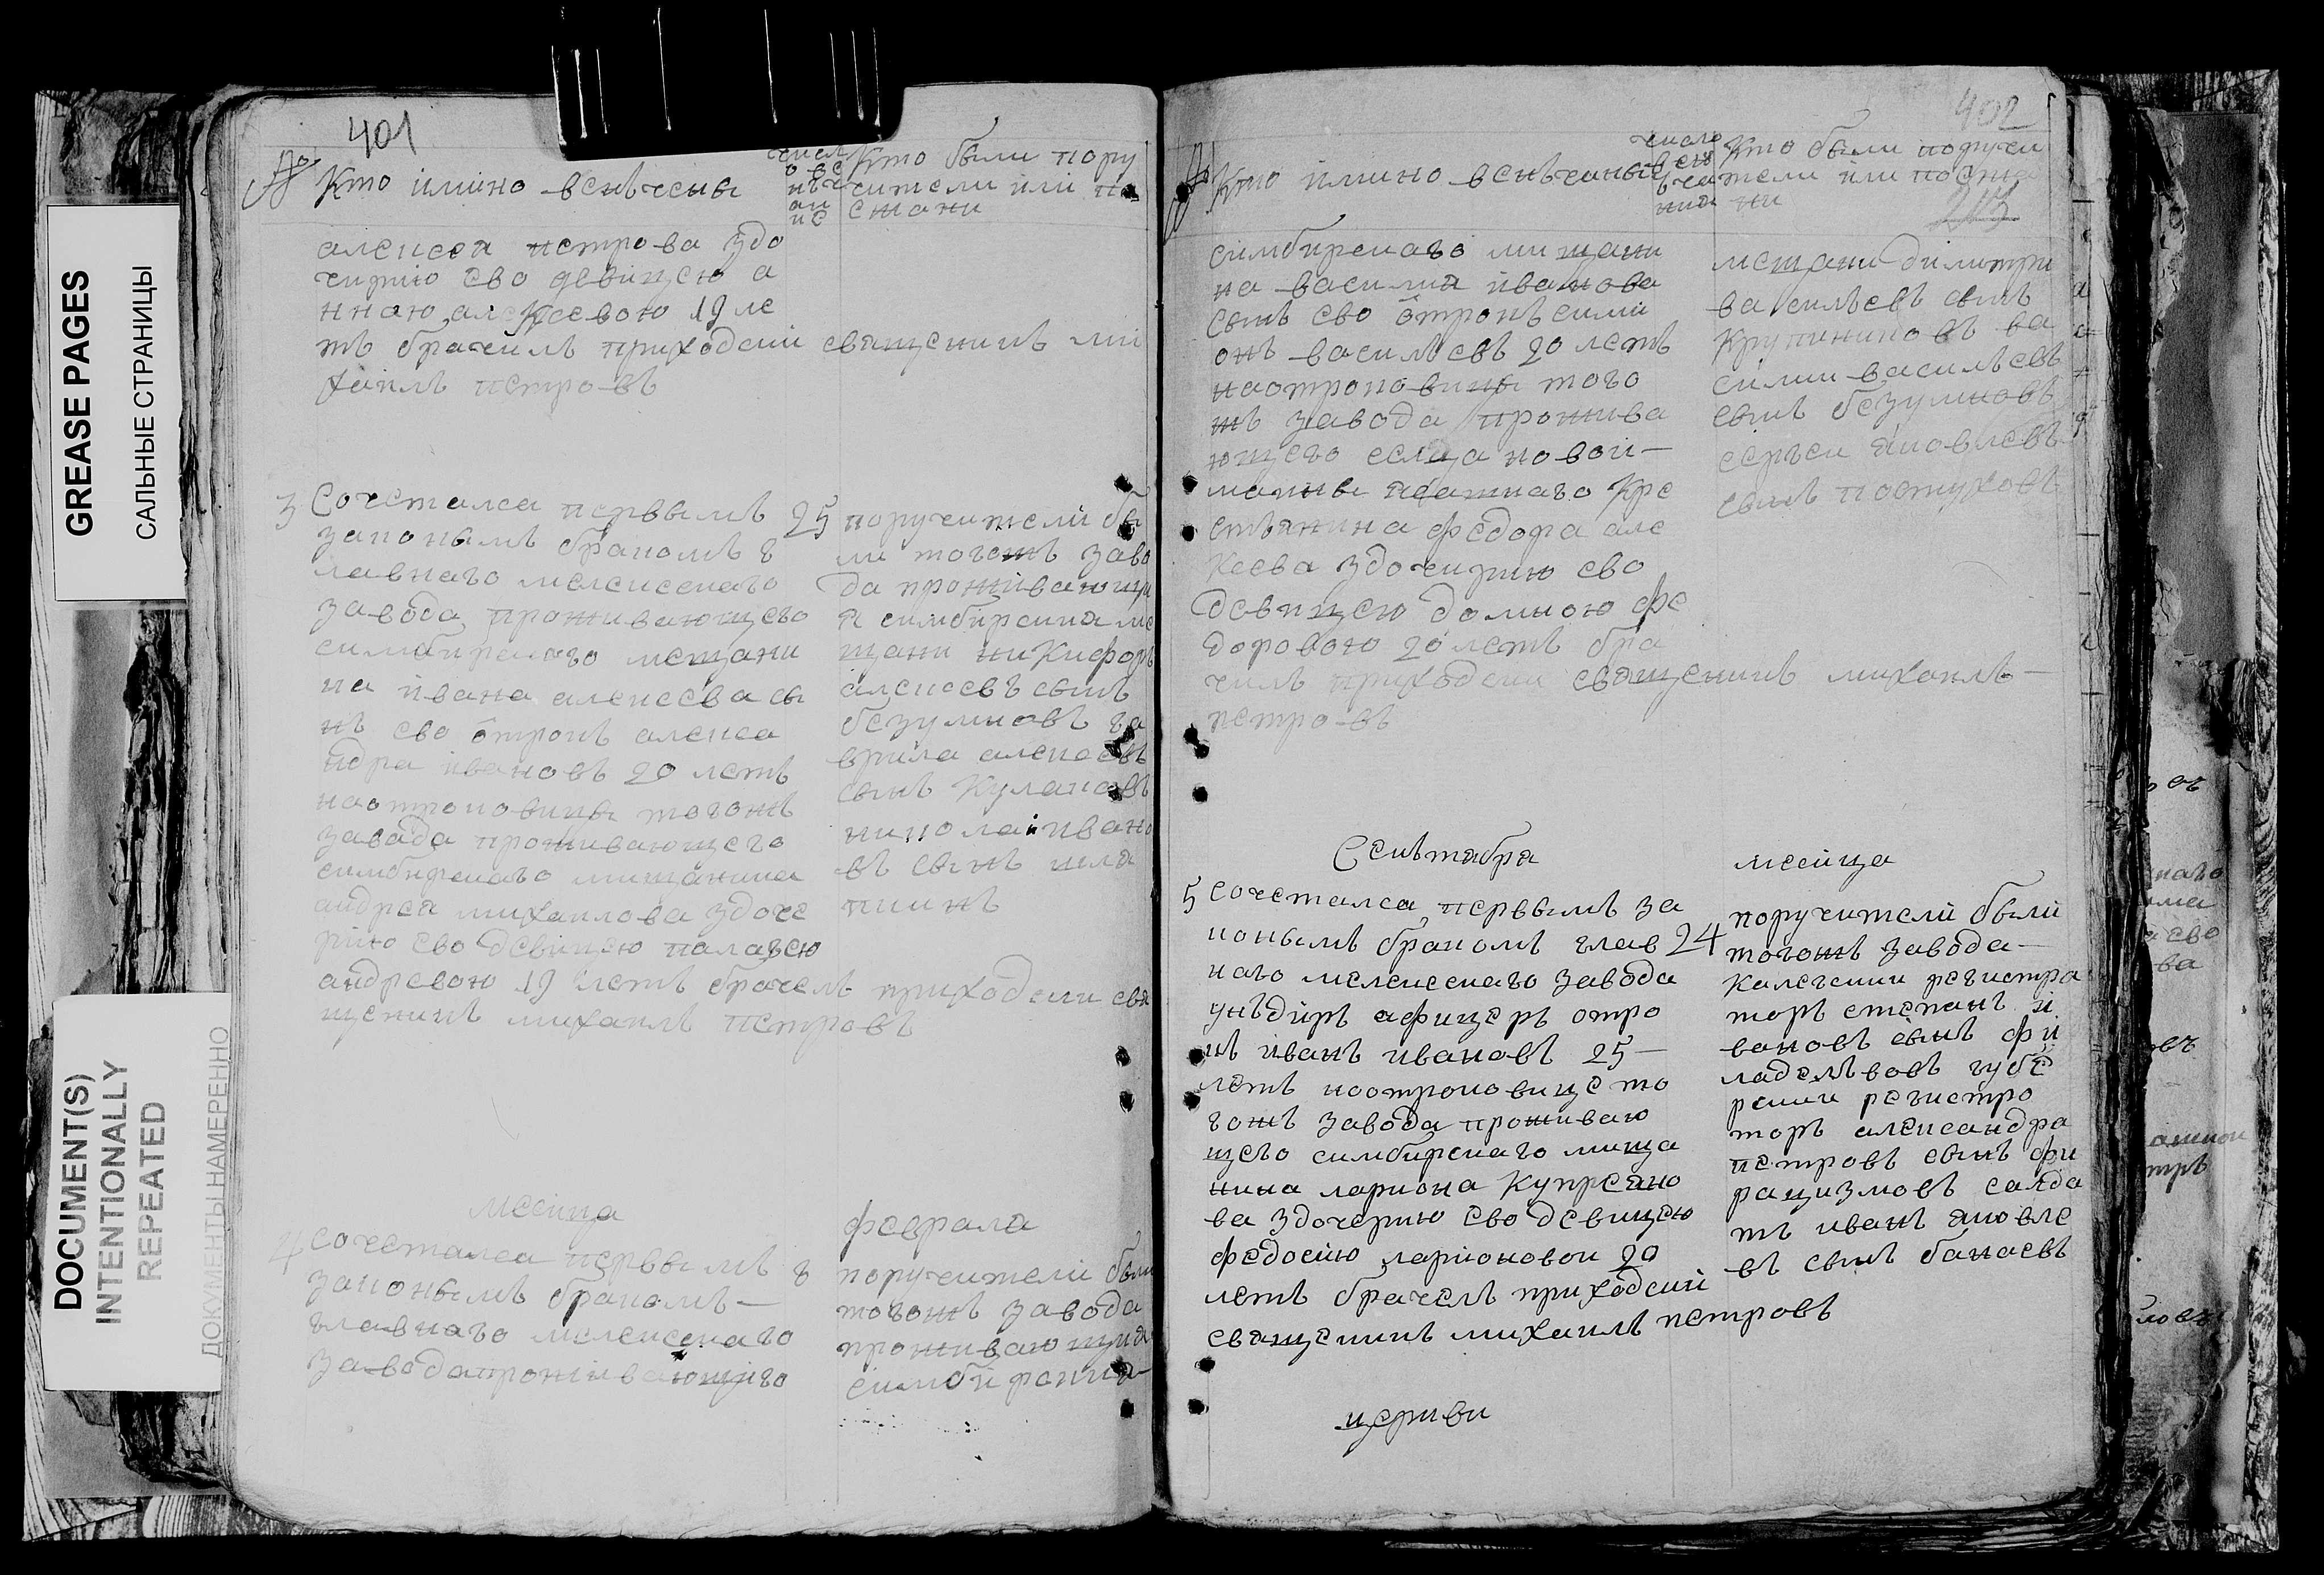 GREASE PAGES
САЛЬНЫЕ СТРАНИЦЫ
DOCUMENT(S)
INTENTIONALLY
REPEATED
ДОКУМЕНТЫ НАМЕРЕННО
401
№ Кто имино венчены
число венчание
Кто были пору
чители или по
смани
алексея петрова здо
черию ево девицею а
нною алексеевою 19 ле
тъ брачилъ приходски священикъ ми
хаилъ петровъ
3 Сочетался первымъ 25
законымъ бракомъ г
лавнаго мелекескаго
завода проживающего
симбирскаго мещани
на ивана алексева сы
нъ ево отрокъ алекса
ндра ивановъ 20 летъ
наотроковицы тогожъ
завода проживающего
симбирскаго мищанина
андрея михаилова здоче
рию ево девицею палагею
андревою 19 летъ брачелъ приходски свя
щеникъ михаилъ петровъ
поручители бы
ли тогожъ заво
да проживающи
я симбирския ме
щани никифоръ
алексевъ сынъ
безумновъ га
врила алексевъ
сынъ Кулаковъ
николаи ивано
въ сынъ шля
пкинъ
месица
февраля
4 сочетался первымъ 8
законымъ бракомъ
главнаго мелекескаго
завода проживающиго
поручители были
тогожъ завода
проживающия
симбирския
402
№ Кто имино венъчаныи
число венъчания
Кто были поручи
тели или посма
ни
213
симбирскаго мищани
на василия иванова
сынъ ево отрокъ сими
онъ василъевъ 20 летъ
наотроковицы того
жъ завода прожива
ющего селца новои
маины ясашнаго Кре
стьянина федора але
Кеева здочирию ево
девицею домною фе
доровою 20 летъ бра
чилъ приходски священикъ михаилъ
петровъ
мещани димитри
василъевъ сынъ
Крупинниковъ ва
силии василъевъ
сынъ безумновъ
сергеи яковлевъ
сынъ постуховъ
Сеньтября
месица
5 сочетался первымъ за
конымъ бракомъ глав 24
наго мелекескаго завода
унъдиръ афицеръ отро
къ иванъ ивановъ 25
летъ наотроковице то
гожъ завода проживаю
щего симбирскаго мища
нина лариона Купреяно
ва здочерию ево девицею
федосию ларионовои 20
летъ брачелъ приходскии
священикъ михаилъ петровъ
поручители были
тогожъ завода
Калегкии регистра
торъ степанъ и
вановъ сынъ фи
ладелъвовъ губе
рнкии регистро
торъ александра
петровъ сынъ фи
рацизмовъ салда
тъ иванъ яковле
въ сынъ банаевъ
церкви